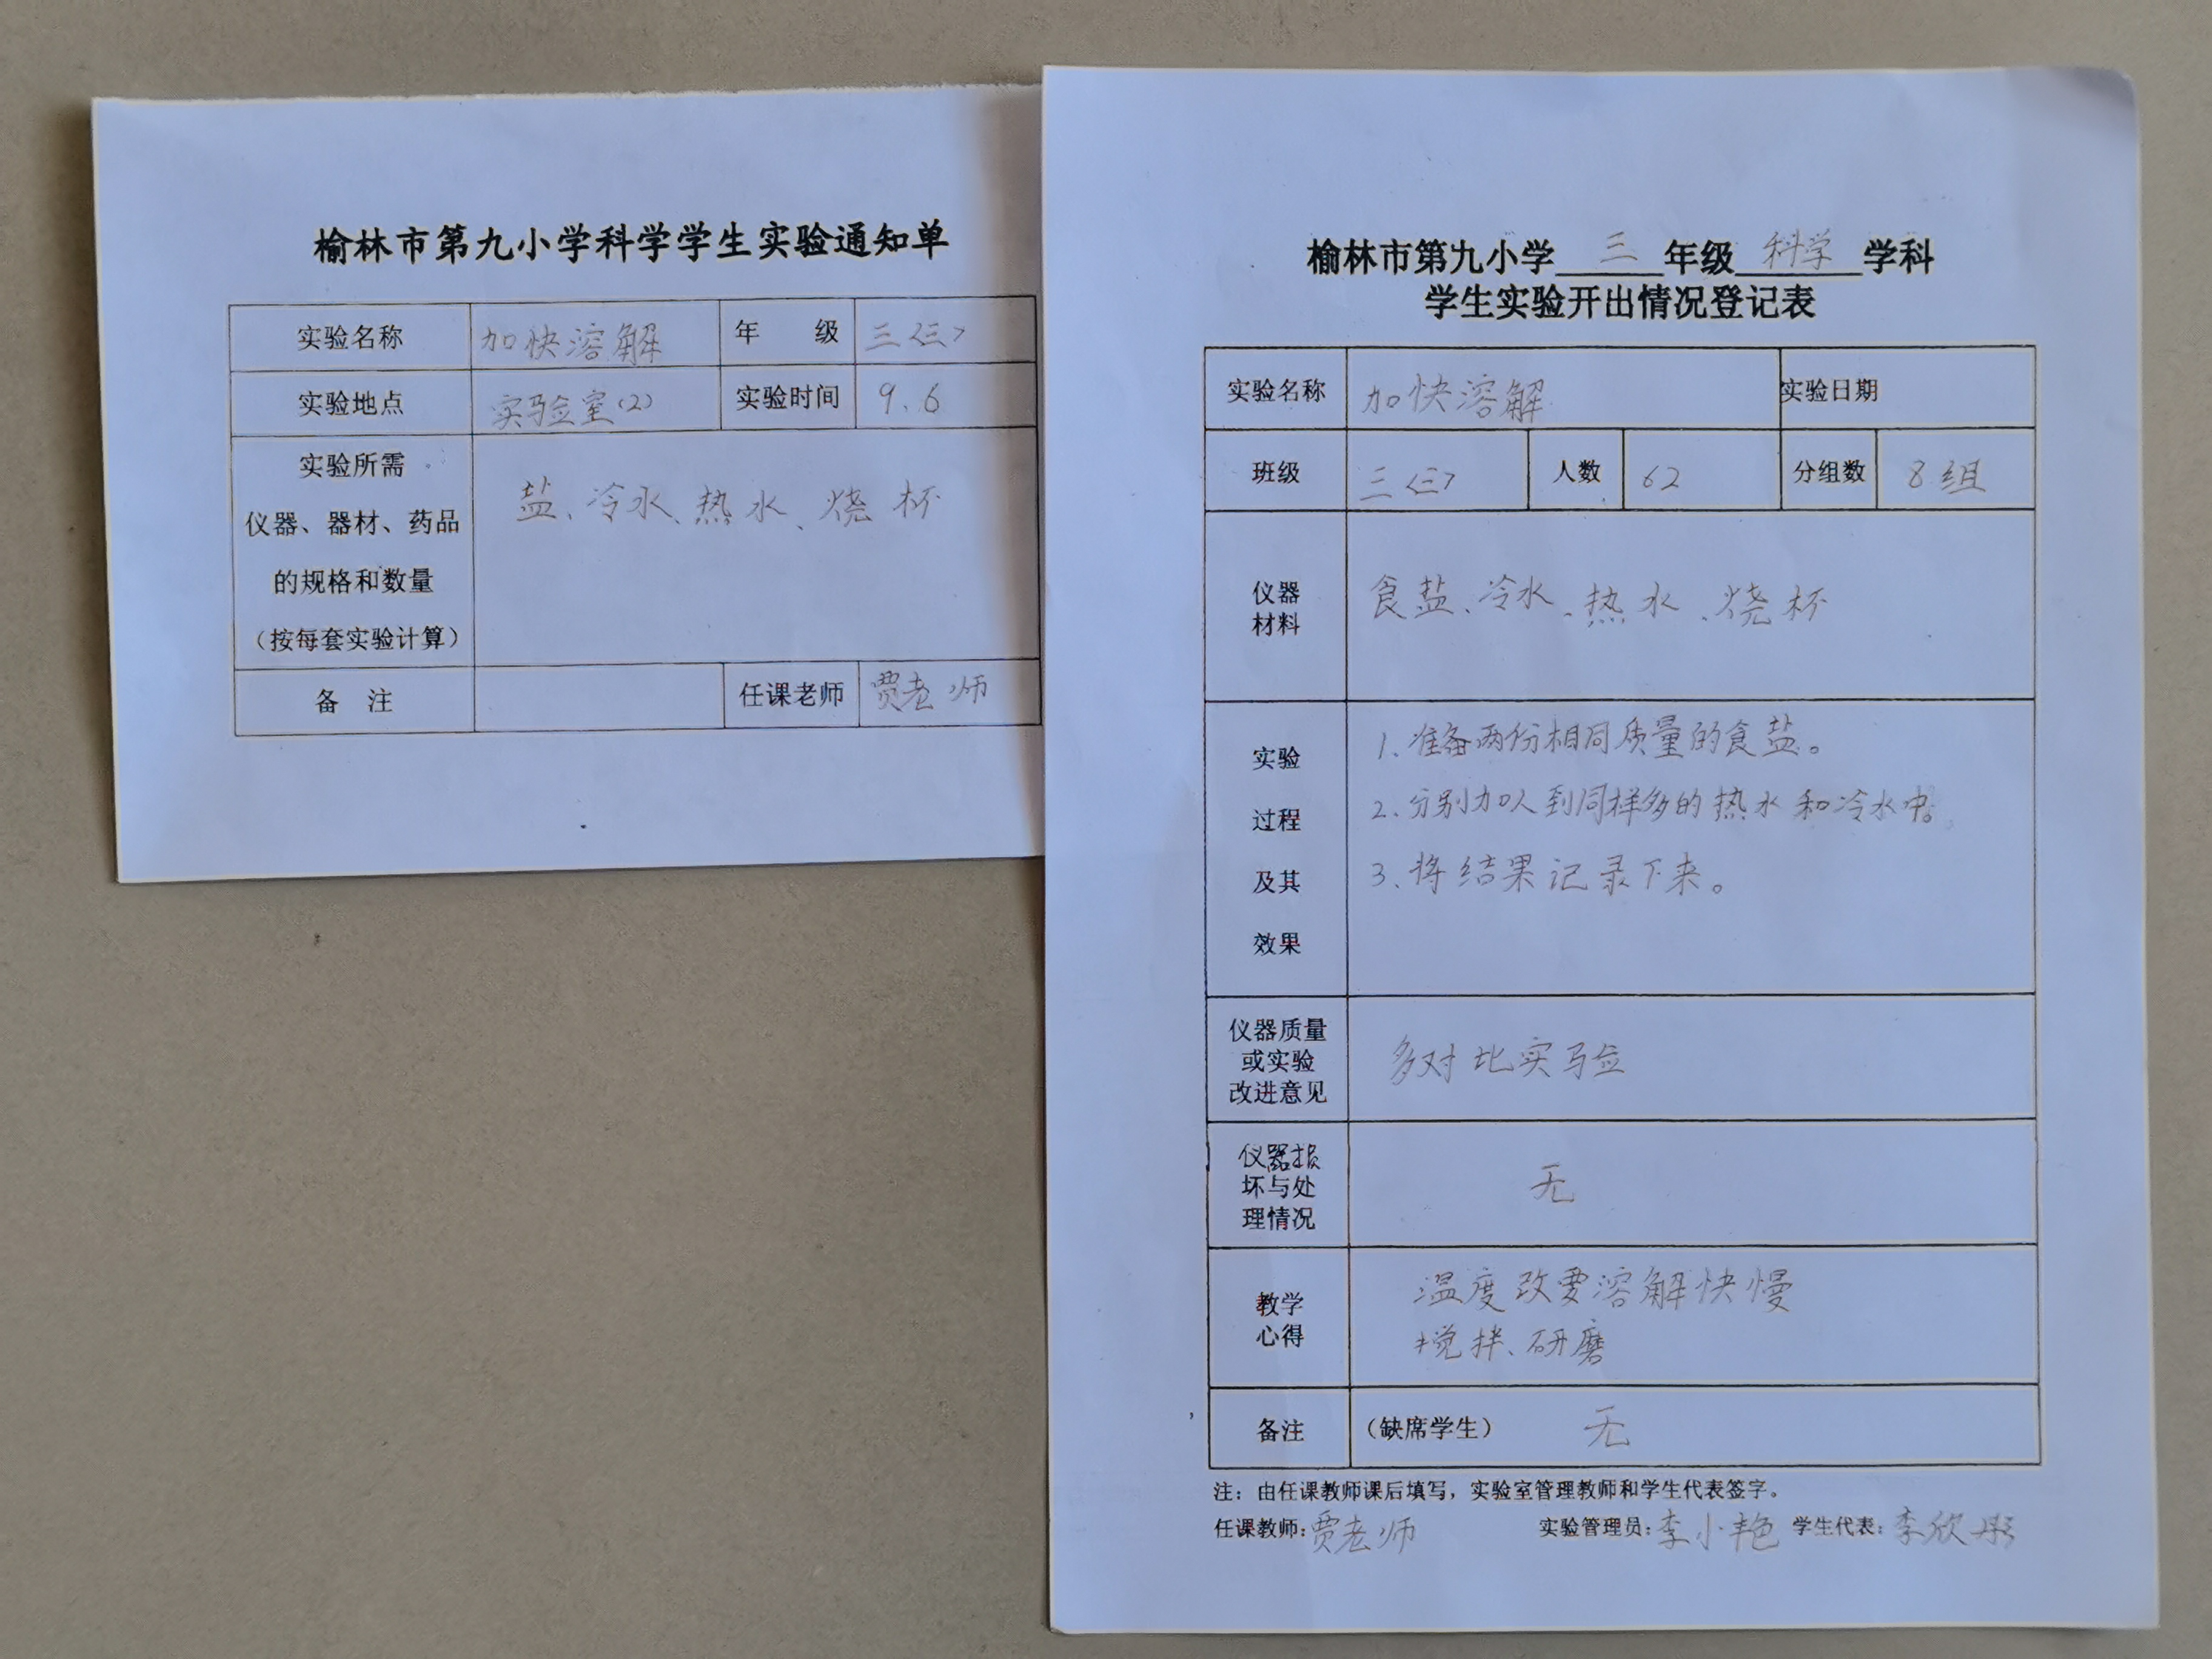 榆林市第九小学科学学生实验通知单
实验名称 加快溶解 年 级 三<三>
实验地点 实验室(2) 实验时间 9.6
实验所需
仪器、器材、药品
的规格和数量
(按每套实验计算)
盐、冷水、热水、烧杯
备 注 任课老师 贾老师
榆林市第九小学 三 年级 科学 学科
学生实验开出情况登记表
实验名称 加快溶解 实验日期
班级 三<三> 人数 62 分组数 8组
仪器
材料
食盐、冷水、热水、烧杯
实验
过程
及其
效果
1、准备两份相同质量的食盐。
2、分别加入到同样多的热水和冷水中。
3、将结果记录下来。
仪器质量
或实验
改进意见
多对比实验
仪器损
坏与处
理情况
无
教学
心得
温度改要溶解快慢
搅拌、研磨
备注 (缺席学生) 无
注：由任课教师课后填写，实验室管理教师和学生代表签字。
任课教师:贾老师 实验管理员:李小艳 学生代表:李欣彤